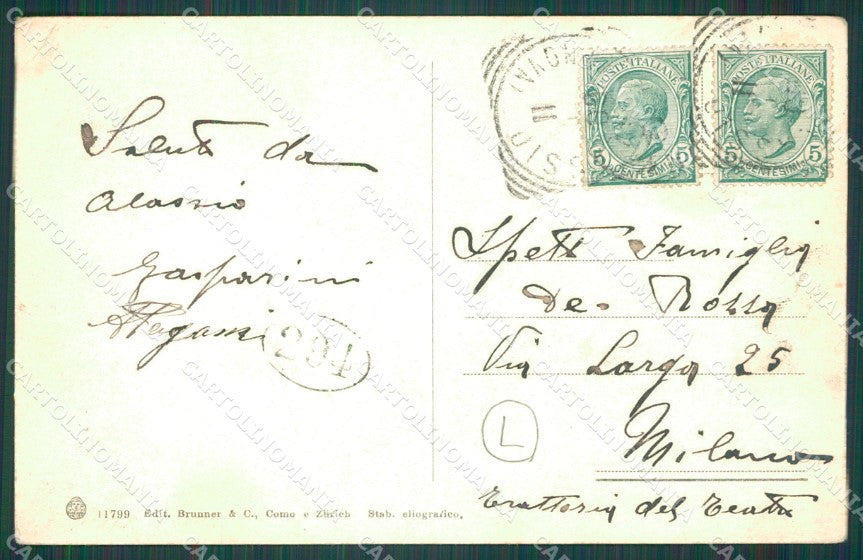 Saluti da
Alassio
Gasparini
294
POSTE ITALIANE
5 CENTESIMI 5
POSTE ITALIANE
5 CENTESIMI 5
Spett Famiglia
De Rossa
Via Larga 25
Milano
Trattoria del Teatro
L
11799 Edit. Brunner & C., Como e Zürich Stab. eliografico.
CARTOLINOMANIA